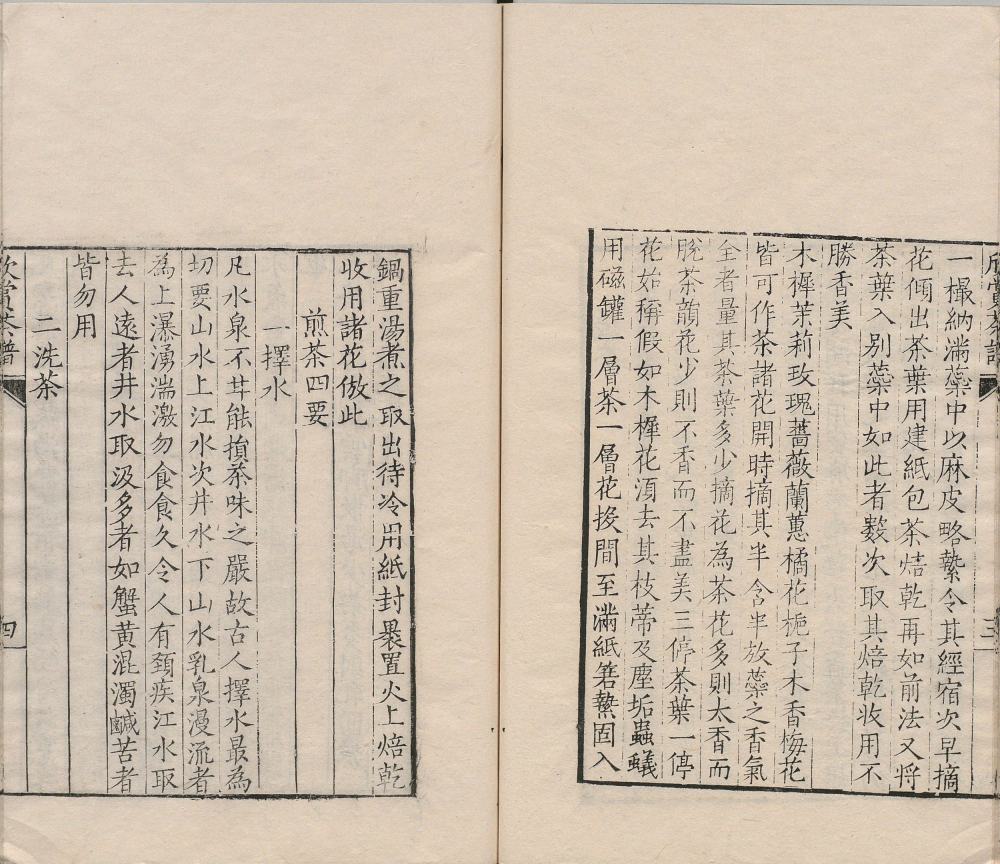 欣賞茶譜
三
一撮納滿蘂中以麻皮略縶令其經宿次早摘
花傾出茶葉用建紙包茶焙乾再如前法又將
茶葉入別蘂中如此者數次取其焙乾收用不
勝香美
木樨茉莉玫瑰薔薇蘭蕙橘花梔子木香梅花
皆可作茶諸花開時摘其半含半放蘂之香氣
全者量其茶葉多少摘花為茶花多則太香而
脫茶韻花少則不香而不盡美三停茶葉一停
花始稱假如木樨花湏去其枝蒂及塵垢蟲蟻
用磁罐一層茶一層花投間至滿紙箬縶固入
鍋重湯煮之取出待冷用紙封褁置火上焙乾
收用諸花倣此
煎茶四要
一擇水
凡水泉不甘能損茶味之嚴故古人擇水最為
切要山水上江水次井水下山水乳泉漫流者
為上瀑湧湍激勿食食久令人有頸疾江水取
去人遠者井水取汲多者如蟹黃混濁鹹苦者
皆勿用
二洗茶
欣賞茶譜
四